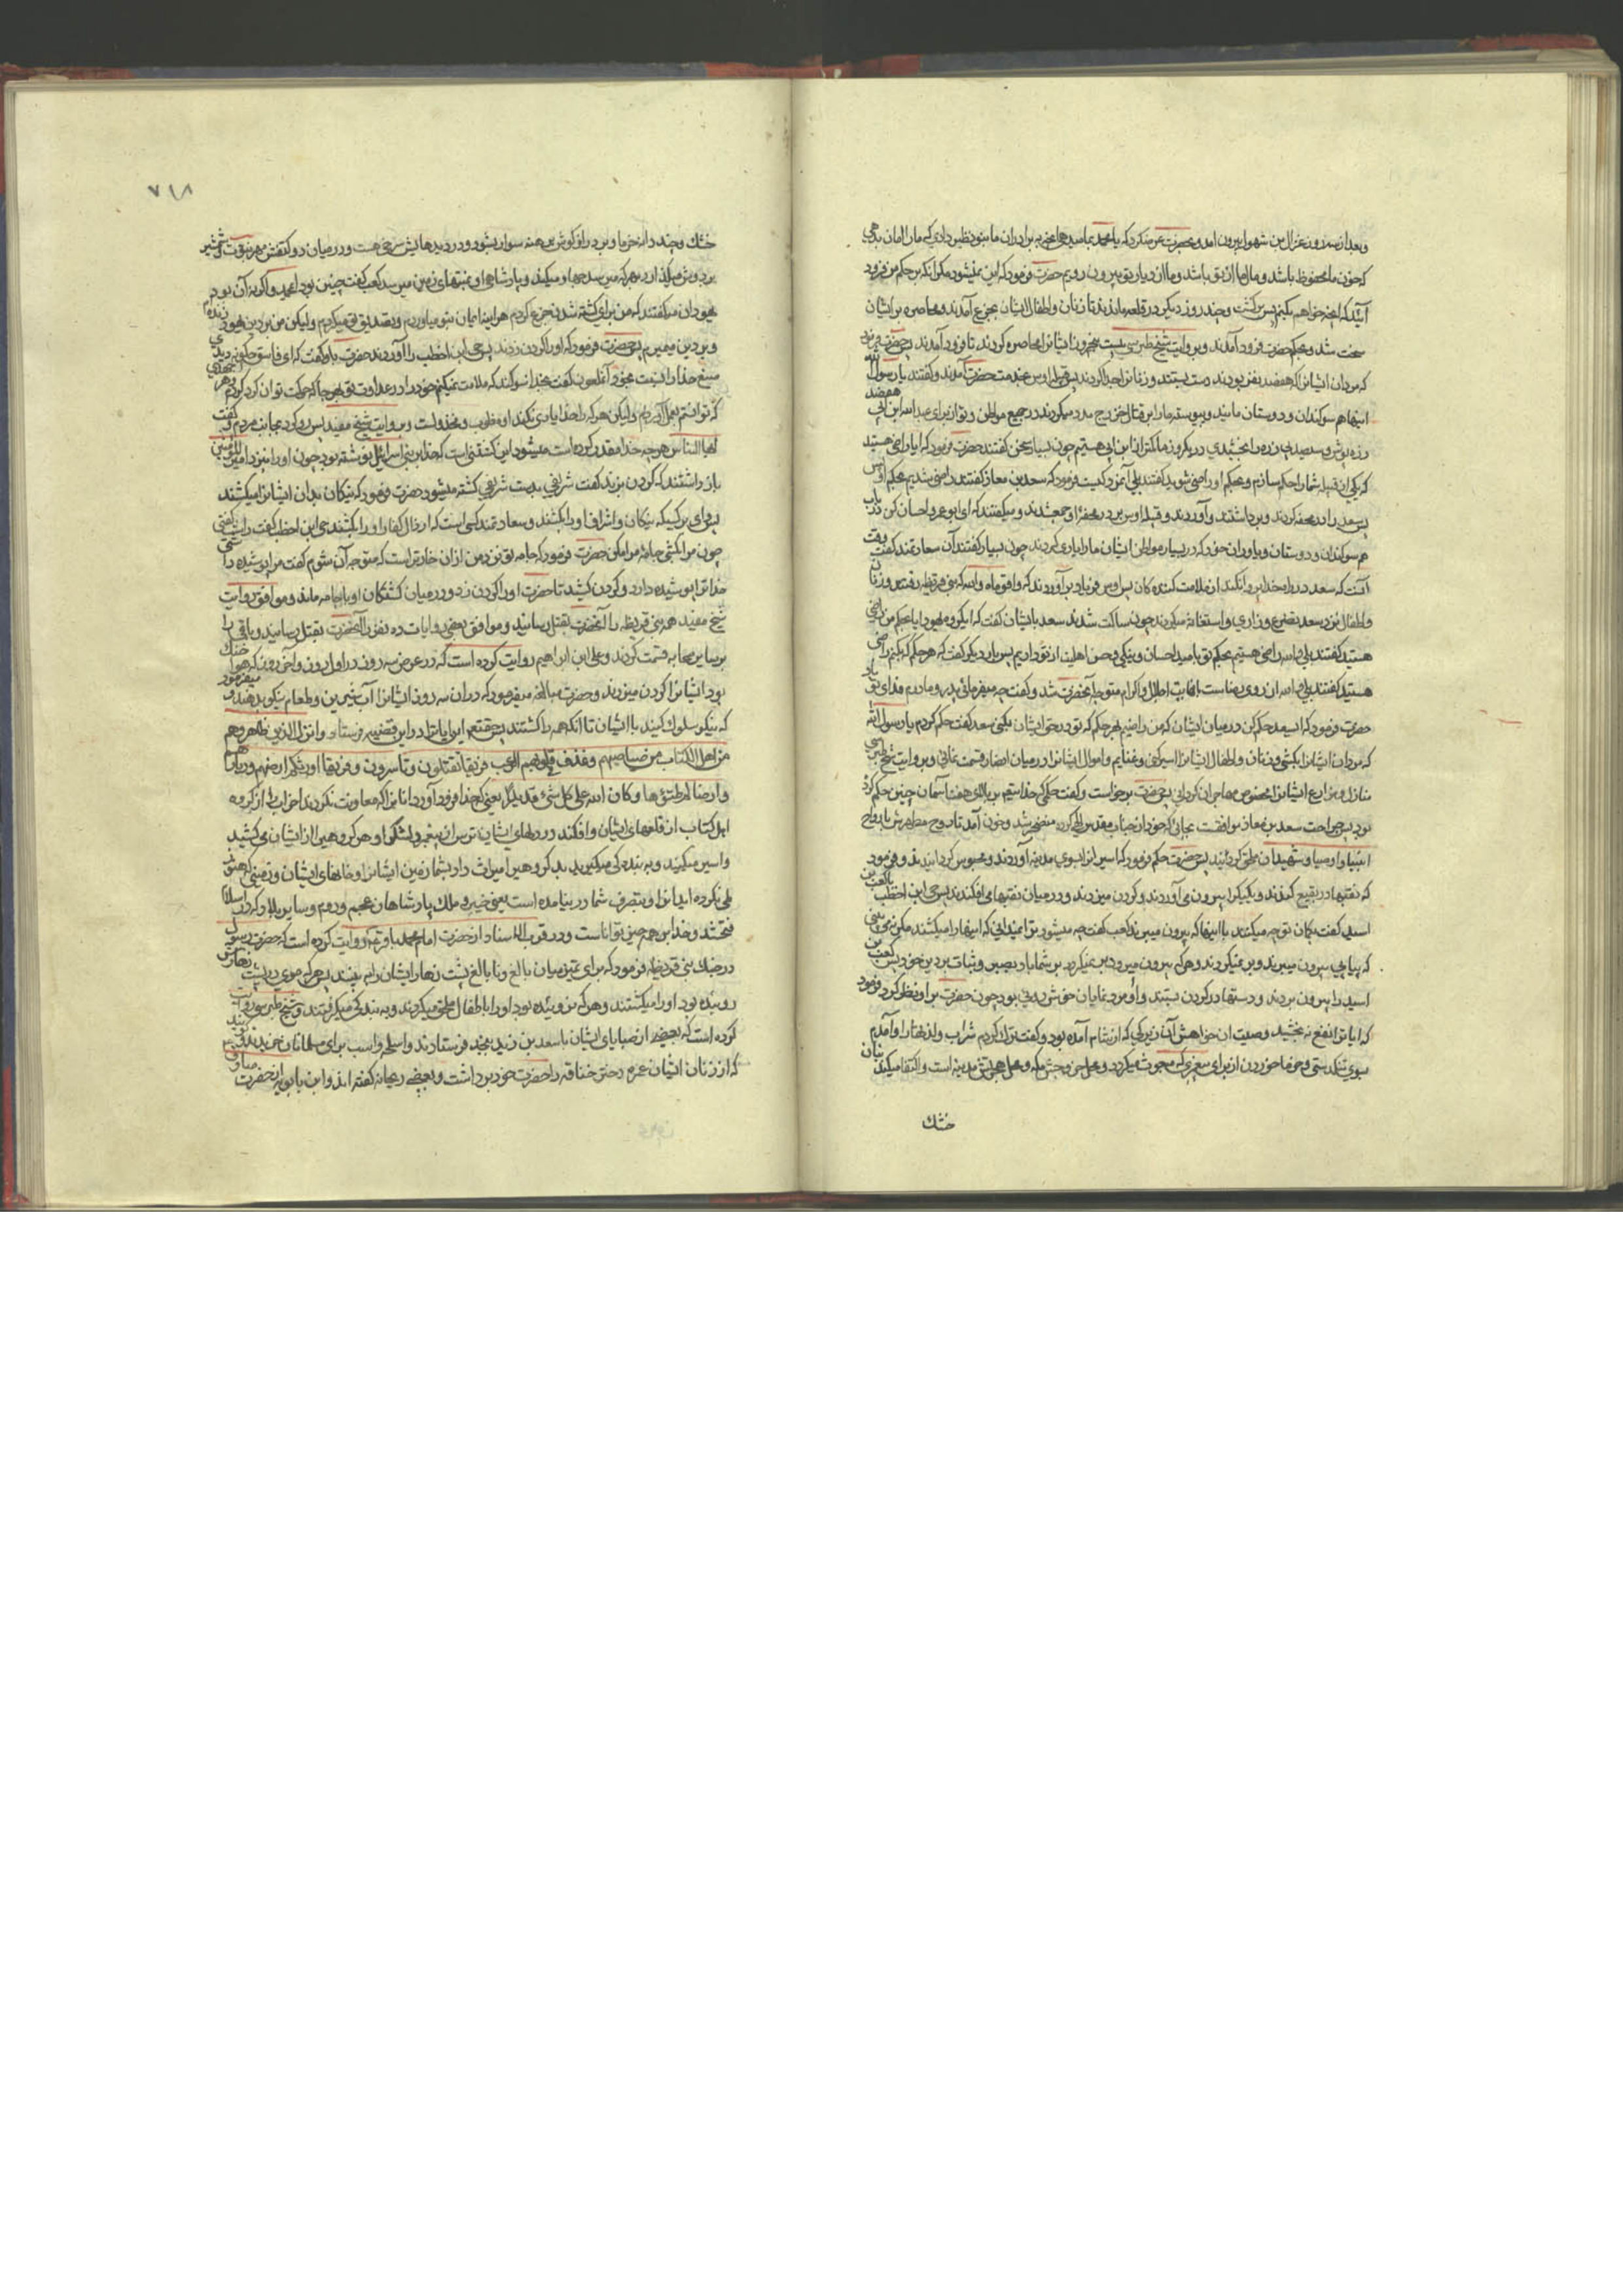 وبعد از سه روز غزال بن شهوا بیرون آمد و بحضرت عرض کرد که یا محمد بما میدهی آنچه به برادران ما بنو نظیر دادی که ما را امان بدهی
که خون ما محفوظ باشد و مال ما از تو باشد و ما از دیار تو بیرون رویم حضرت فرمود که این نمیشود مگر آنکه بر حکم من فرود
آئید که آنچه خواهم بکنم پس برگشت و چند روز دیگر در قلعه ماندند تا زنان و اطفال ایشان بجزع آمدند و محاصره بر ایشان
سخت شد و بحکم حضرت فرود آمدند و بروایت شیخ طبرسی بیست و پنجروز ایشانرا محاصره کردند تا فرود آمدند پس حضرت فرمود
که مردان ایشانرا که هفصد نفر بودند دست بستند و زنانرا جدا کردند پس قبیله اوس بخدمت حضرت آمدند و گفتند یا رسول الله
اینها هم سوکندان و دوستان مایند و پیوسته ما را بر قتال خزرج مدد میکردند در جمیع مواطن و تو از برای عبدالله ابن ابی هفصد
زره پوش و سیصد بی زره را بخشیدی در یکروز ما کمتر از ابن ابی هستیم چون بسیار سخن گفتند حضرت فرمود که آیا راضی هستید
که یکی از قبیله شما را حکم سازم و بحکم او راضی شوید گفتند بلی آنمرد کیست فرمود که سعد بن معاذ گفتند راضی شدیم بحکم او
پس سعد را در محفه کردند و برداشتند و آوردند و قبیله اوس بر دور محفه او جمع شدند و میگفتند که ای ابو عمرو احسان کن در باب
هم سوکندان و دوستان و یاوران خود که در بسیار مواطن ایشان ما را یاری کردند چون بسیار گفتند آن سعادتمند گفت وقت
آنست که سعد در راه خدا پروا نکند از ملامت ملامت کننده کان پس اوس فریاد بر آوردند که واقوماه والله که بنی قریظه رفتند و زنان
و اطفال نزد سعد تضرع و زاری و استغاثه میکردند چون ساکت شدند سعد با ایشان گفت که ای گروه یهود آیا بحکم من راضی
هستید گفتند بلی والله راضی هستیم بحکم تو بامید احسان و نیکی و حسن اهلیت از تو داریم پس بار دیگر گفت که هر حکم که بکنم راضی
هستید گفتند بلی والله پس از روی نهایت اجلال و اکرام متوجه آنحضرت شد و گفت چه میفرمائی پدر و مادرم فدای تو باد
حضرت فرمود که ای سعد حکم کن در میان ایشان که من راضیم بهر حکم که تو در حق ایشان بکنی سعد گفت حکم کردم یا رسول الله
که مردان ایشانرا بکشی و زنان و اطفال ایشانرا اسیر کنی و غنایم و اموال ایشانرا در میان انصار قسمت نمائی و بروایت شیخ طبرسی
منازل و مزارع ایشانرا مخصوص مهاجران گردانی پس حضرت برخواست و گفت حکمی که خدا بر بالای هفت آسمان چنین حکم کرده
بود پس جراحت سعد بن معاذ منفجر شد و خون آمد تا روح مطهرش بارواح
انبیا و اوصیا و شهیدان ملحق گردید پس حضرت حکم فرمود که اسیرانرا بسوی مدینه آوردند و محبوس گردانیدند و فرمود
که نقبها در بقیع کندند و یکیک را بیرون می آوردند و گردن میزدند و در میان نقبها می افکندند پس حی ابن اخطب با کعب بن
اسید گفت گمان تو چه میکنند با اینها که بیرون میبرند کعب گفت چه میشود ترا نمیدانی که اینها را میکشند مگر نمی بینی
که پیاپی بیرون میبرند و بر نمیگردند و هر که بیرون میرود بر نمیگردد بر شما باد بصبر و ثبات بر دین خود پس کعب بن
اسید را بیرون بردند و دستها در گردن بستند و او مرد نمایان خوش روئی بود چون حضرت بر او نظر کرد فرمود
که آیا ترا نفع نه بخشید وصیت ابن حواش آن زیرکی که از شام آمده بود و گفت ترک کردم شراب و لذتها را و آمدم
بسوی تنگدستی و خرما خوردن از برای پیغمبری که مبعوث میگردد و محل خروجش مکه و محل هجرتش مدینه است و اکتفا میکند بنان
خشک
۷۱۸
خشک و چند دانه خرما و بر دراز گوش برهنه سوار بشود و در دیدهایش سرخی هست و در میان دو کتفش مهر نبوت و شمشیر
بر دوش میگذارد بهر که میرسد جهاد میکند و پادشاهی او بمنتهای زمین میرسد کعب گفت چنین بود ای محمد و اگر نه آن بود
یهودان میگفتند که من برای کشته شدن جزع کردم هر آینه ایمان بتو میاوردم و تصدیق تو میکردم ولیکن من بر دین یهود زنده ام
و بر دین میمیرم پس حضرت فرمود که او را گردن زدند پس حی ابن اخطب را آوردند حضرت باو گفت که ای فاسق چگونه دیدی
صنع خدا را نسبت بخود آنملعون گفت بخدا سوگند که ملامت نمیکنم خود را در عداوت تو و بهر جا که حرکت توان کرد کردم و هر
که توانستم بعمل آوردم ولیکن هر که را خدا یاری نکند او مغلوب و مخذولست و بروایت شیخ مفید پس رو کرد بجانب مردم و گفت
ایها الناس هر چه خدا مقدر کرده است میشود این کشتنی است که خدا بر بنی اسرائیل نوشته بود چون او را نزد امیرالمؤمنین
باز داشتند که گردن بزند گفت شریفی بدست شریفی کشته میشود حضرت فرمود که نیکان بدان ایشانرا میکشند
پس وای بر کسیکه نیکان و اشراف او را بکشند و سعادتمند کسی است که ارذال کفار او را بکشند حی ابن اخطب گفت راست گفتی
چون مرا بکشی جامه مرا مکن حضرت فرمود که جامه تو نزد من از آن خوارتر است که متوجه آن شوم گفت مرا پوشیده داشتی
خدا ترا پوشیده دارد و گردن کشید تا حضرت او را گردن زد و در میان کشتگان او با جامه ماند و موافق روایت
شیخ مفید همه بنی قریظه را آنحضرت بقتل رسانید و موافق بعضی روایات ده نفر را آنحضرت بقتل رسانید و باقی را
بر سایر صحابه قسمت کردند و علی ابن ابراهیم روایت کرده است که در عرض سه روز در اول روز و آخر روز که هوا خنک
بود ایشانرا گردن میزدند و حضرت مبالغه میفرمود که در آن سه روز ایشانرا آب شیرین و طعام نیکو بدهند و میفرمود
که نیکو سلوک کنید با ایشان تا آنکه همه را کشتند پس حقتعالی این آیات را در این قضیه فرستاد و انزل الذین ظاهروهم
من اهل الکتاب من صیاصیهم و قذف فی قلوبهم الرعب فریقا تقتلون و تأسرون فریقا و اورثکم ارضهم و دیارهم
و ارضا لم تطؤها و کان الله علی کل شیء قدیرا یعنی که خدا فرود آورد آنانرا که معاونت کردند احزاب را از گروه
اهل کتاب از قلعهای ایشان و افکند در دلهای ایشان ترس از پیغمبر و لشگر او هر گروهیرا از ایشان می کشید
و اسیر میکنید و به بندگی میگیرید گروهیرا و میراث داد بشما زمین ایشانرا و خانهای ایشان و زمینی که هنوز
طی نکرده اید آنرا و بتصرف شما در نیامده است یعنی خیبر و ملک پادشاهان عجم و روم و سایر بلاد که در اسلام
فتح شد و خدا بر همه چیز تواناست و در قرب الاسناد از حضرت امام محمد باقر روایت کرده است که حضرت رسول
در جنگ بنی قریظه فرمود که برای تمیز میان بالغ و نابالغ پشت زهار ایشان را به بینند پس هر که موی در پشت زهارش
روئیده بود او را میکشتند و هر که نروئیده بود او را باطفال ملحق میکردند و به بندگی میگرفتند و شیخ طبرسی روایت
کرده است که بعضی از صبایای ایشان با سعد بن زید بنجد فرستادند و اسلحه و اسب برای مسلمانان خریدند
که از زنان ایشان عمره دختر خنافه را حضرت خود برداشت و بعضی ریحانه گفته اند و ابن بابویه از حضرت